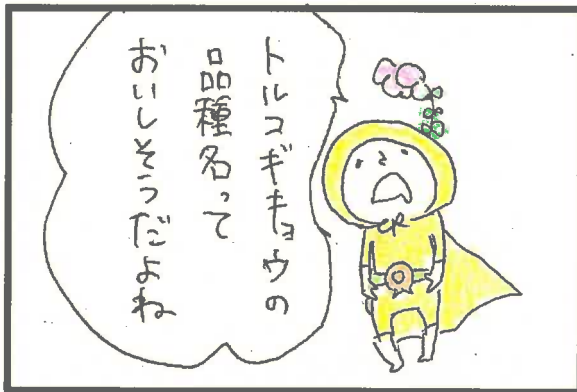 トルコギキョウの
品種名って
おいしそうだよね